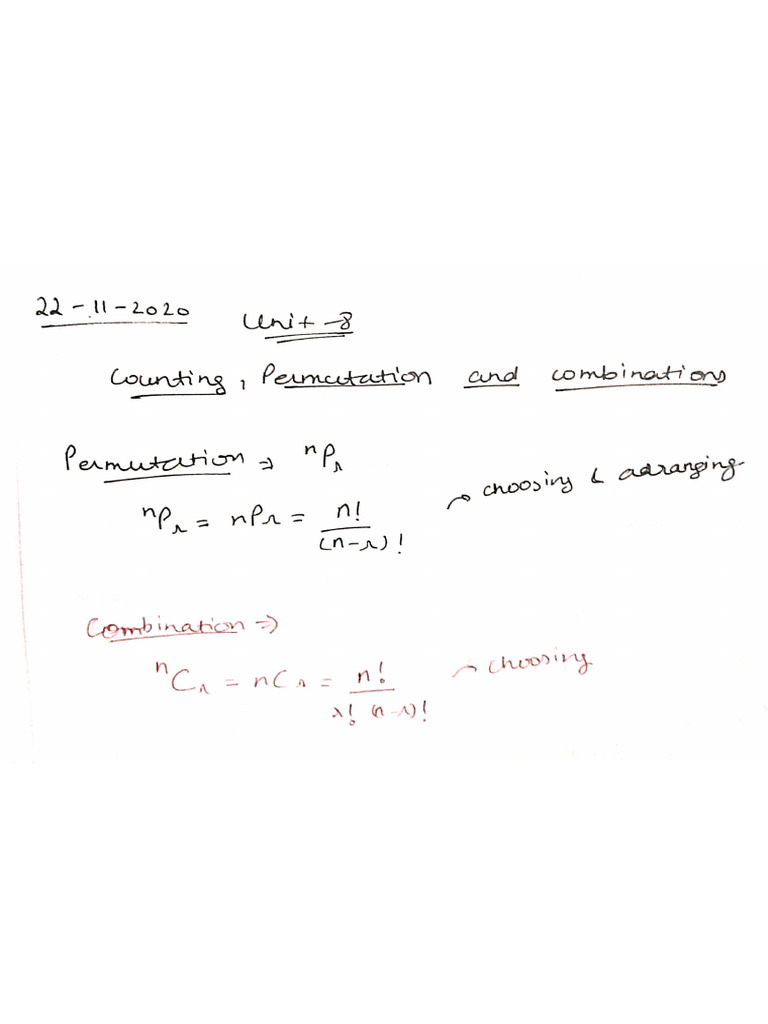 22-11-2020
Unit-8
Counting, Permutation and combinations
Permutation ⇒ ⁿPᵣ
ⁿPᵣ = nPr = n!/(n-r)! → choosing & arranging
Combination ⇒
ⁿCᵣ = nCr = n!/r! (n-r)! → choosing